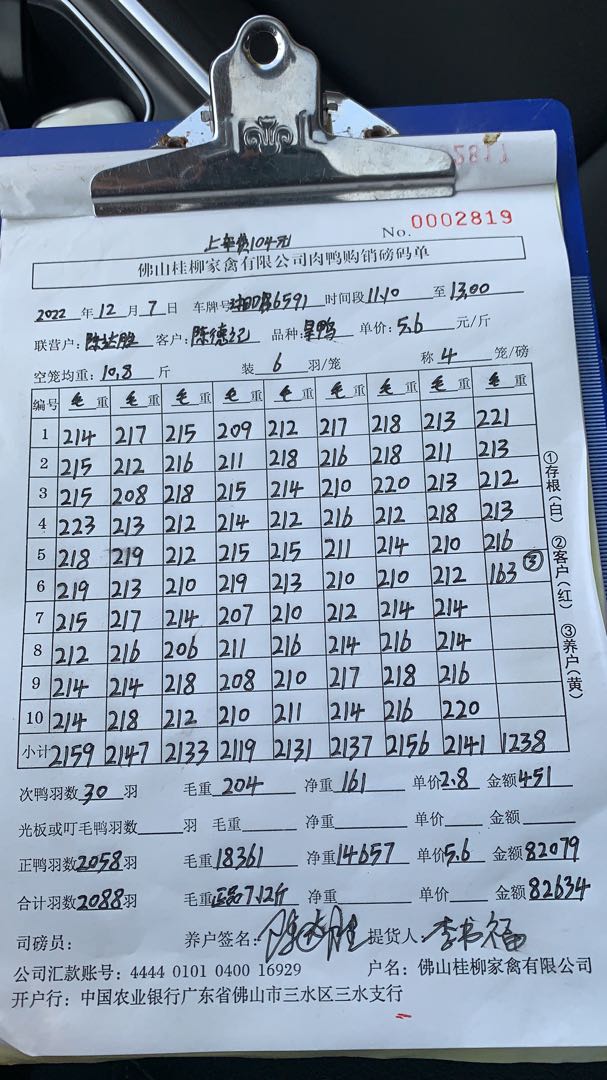 No. 0002819
上车费104元
佛山桂柳家禽有限公司肉鸭购销磅码单
2022 年 12 月 7 日 车牌号 6591 时间段 11.10 至 13.00
联营户: 陈达胜 客户: 陈德记 品种: 鸭 单价: 5.6 元/斤
空笼均重: 10.8 斤 装 6 羽/笼 称 4 笼/磅
编号 毛重 毛重 毛重 毛重 毛重 毛重 毛重 毛重 毛重
1 214 217 215 209 212 217 218 213 221
2 215 212 216 211 218 216 218 211 213
3 215 208 218 215 214 210 220 213 212
4 223 213 212 214 212 216 212 218 213
5 218 219 212 215 215 211 214 210 216
6 219 213 210 219 213 210 210 212 163 ③
7 215 217 214 207 210 212 214 214
8 212 216 206 211 216 214 216 214
9 214 214 218 208 210 217 218 216
10 214 218 212 210 211 214 216 220
小计 2159 2147 2133 2119 2131 2137 2156 2141 1238
①存根(白) ②客户(红) ③养户(黄)
次鸭羽数 30 羽 毛重 204 净重 161 单价 2.8 金额 451
光板或叮毛鸭羽数 羽 毛重 净重 单价 金额
正鸭羽数 2058 羽 毛重 18361 净重 14657 单价 5.6 金额 82079
合计羽数 2088 羽 毛重 正品7.12斤 净重 单价 金额 82634
司磅员: 养户签名: 陈达胜 提货人: 李书福
公司汇款账号: 4444 0101 0400 16929 户名: 佛山桂柳家禽有限公司
开户行: 中国农业银行广东省佛山市三水区三水支行